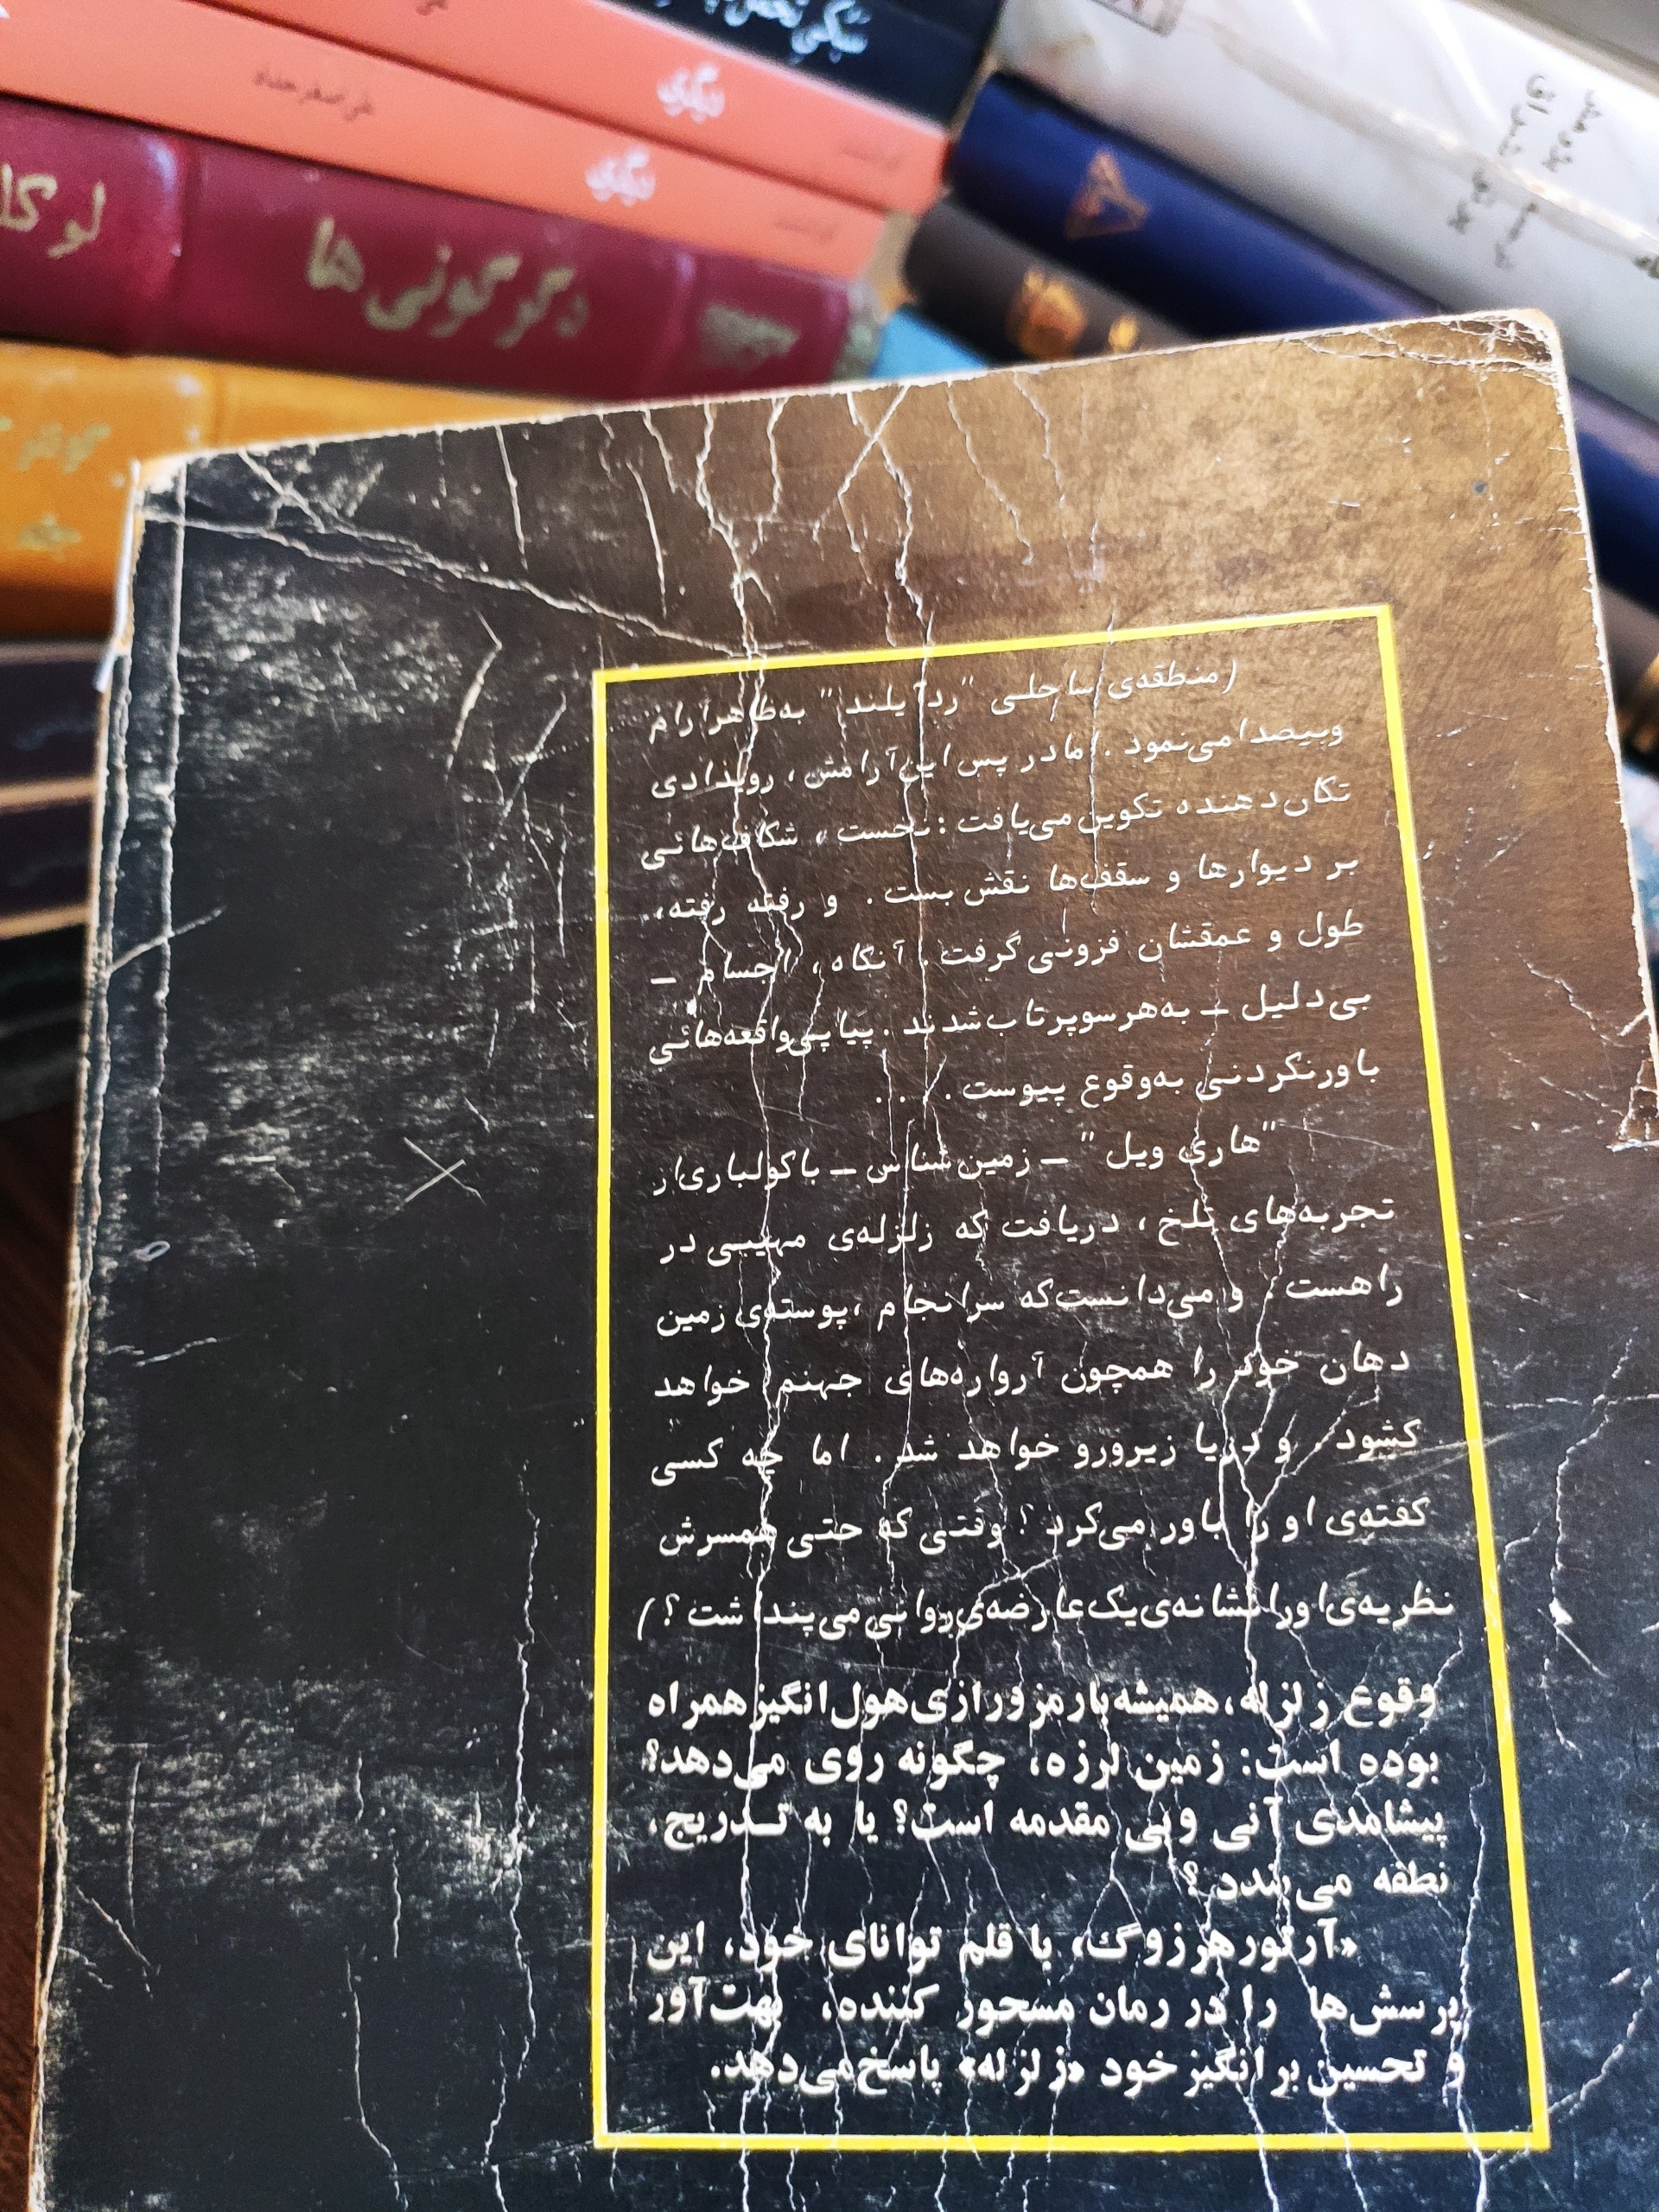 دیگری
علی اصغر حداد
دیگری
دگرگونی‌ها
(منطقه‌ی ساحلی "رد آیلند" به‌ظاهر آرام
و بیصدا می‌نمود. اما در پس این آرامش، رویدادی
تکان‌دهنده تکوین می‌یافت: نخست، شکاف‌هائی
بر دیوارها و سقف‌ها نقش بست. و رفته رفته،
طول و عمقشان فزونی گرفت. آنگاه، اجسام ـ
بی‌دلیل ـ به‌هر سو پرتاب شدند. پیاپی واقعه‌هائی
باورنکردنی به‌وقوع پیوست. . . .
"هاری ویل" ـ زمین شناس ـ با کولباری از
تجربه‌های تلخ، دریافت که زلزله‌ی مهیبی در
راهست. و می‌دانست که سرانجام، پوسته‌ی زمین
دهان خود را همچون آرواره‌های جهنم خواهد
کشود. و دریا زیرورو خواهد شد. اما چه کسی
کفته‌ی او را باور می‌کرد؟ وقتی که حتی همسرش
نظریه‌ی او را نشانه‌ی یک عارضه‌ی روانی می‌پنداشت؟)
وقوع زلزله، همیشه با رمز و رازی هول‌انگیز همراه
بوده است: زمین لرزه، چگونه روی می‌دهد؟
پیشامدی آنی و بی مقدمه است؟ یا به تـدریج،
نطفه می‌بندد؟
«آرتور هرزوگ» با قلم توانای خود، این
پرسش‌ها را در رمان مسحور کننده، بهت‌آور
و تحسین برانگیز خود «زلزله» پاسخ می‌دهد.